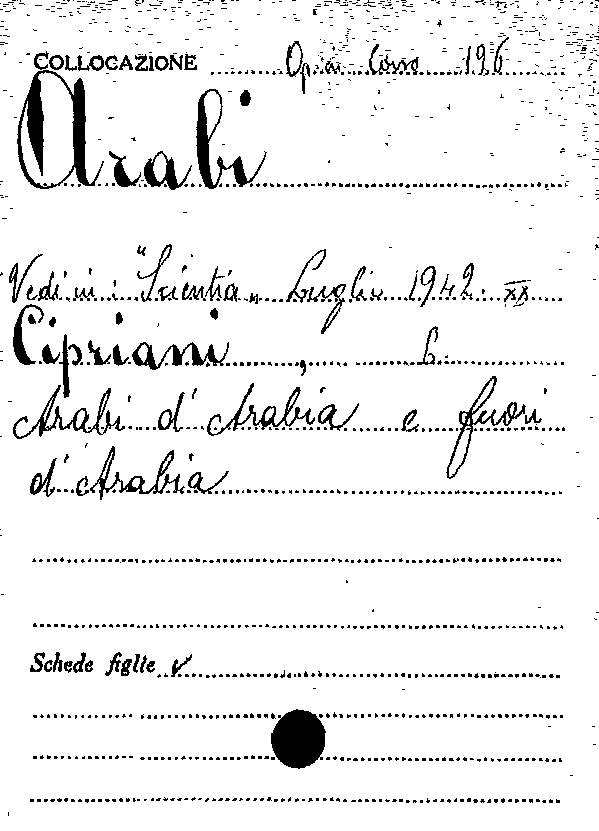 COLLOCAZIONE Op. in Corso 126
Arabi
Vedi in: "Scientia„ Luglio 1942. XX
Cipriani,
Arabi d'Arabia e fuori
d'Arabia
Schede figlie